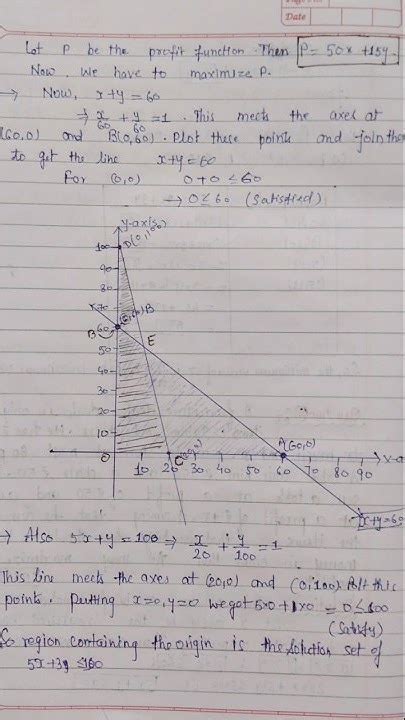 Date
Let P be the profit function. Then P = 50x + 15y.
Now, we have to maximize P.
→ Now, x+y=60
⇒ x/60 + y/60 = 1. This meets the axes at
(60,0) and B(0,60). Plot these points and join them
to get the line x+y=60
For (0,0) 0+0≤60
→ 0≤60 (Satisfied)
y-axis
D(0,100)
100
90
80
70
B 60
B
50
E
40
30
20
10
O
10 20 30 40 50 60 70 80 90
C
A(60,0)
x-a
x+y=60
→ Also 5x+y=100 ⇒ x/20 + y/100 = 1
This line meets the axes at (20,0) and (0,100). Plot this
points. Putting x=0, y=0 we get 5×0+1×0 = 0≤100
(Satisfy)
So region containing the origin is the solution set of
5x+3y ≤100